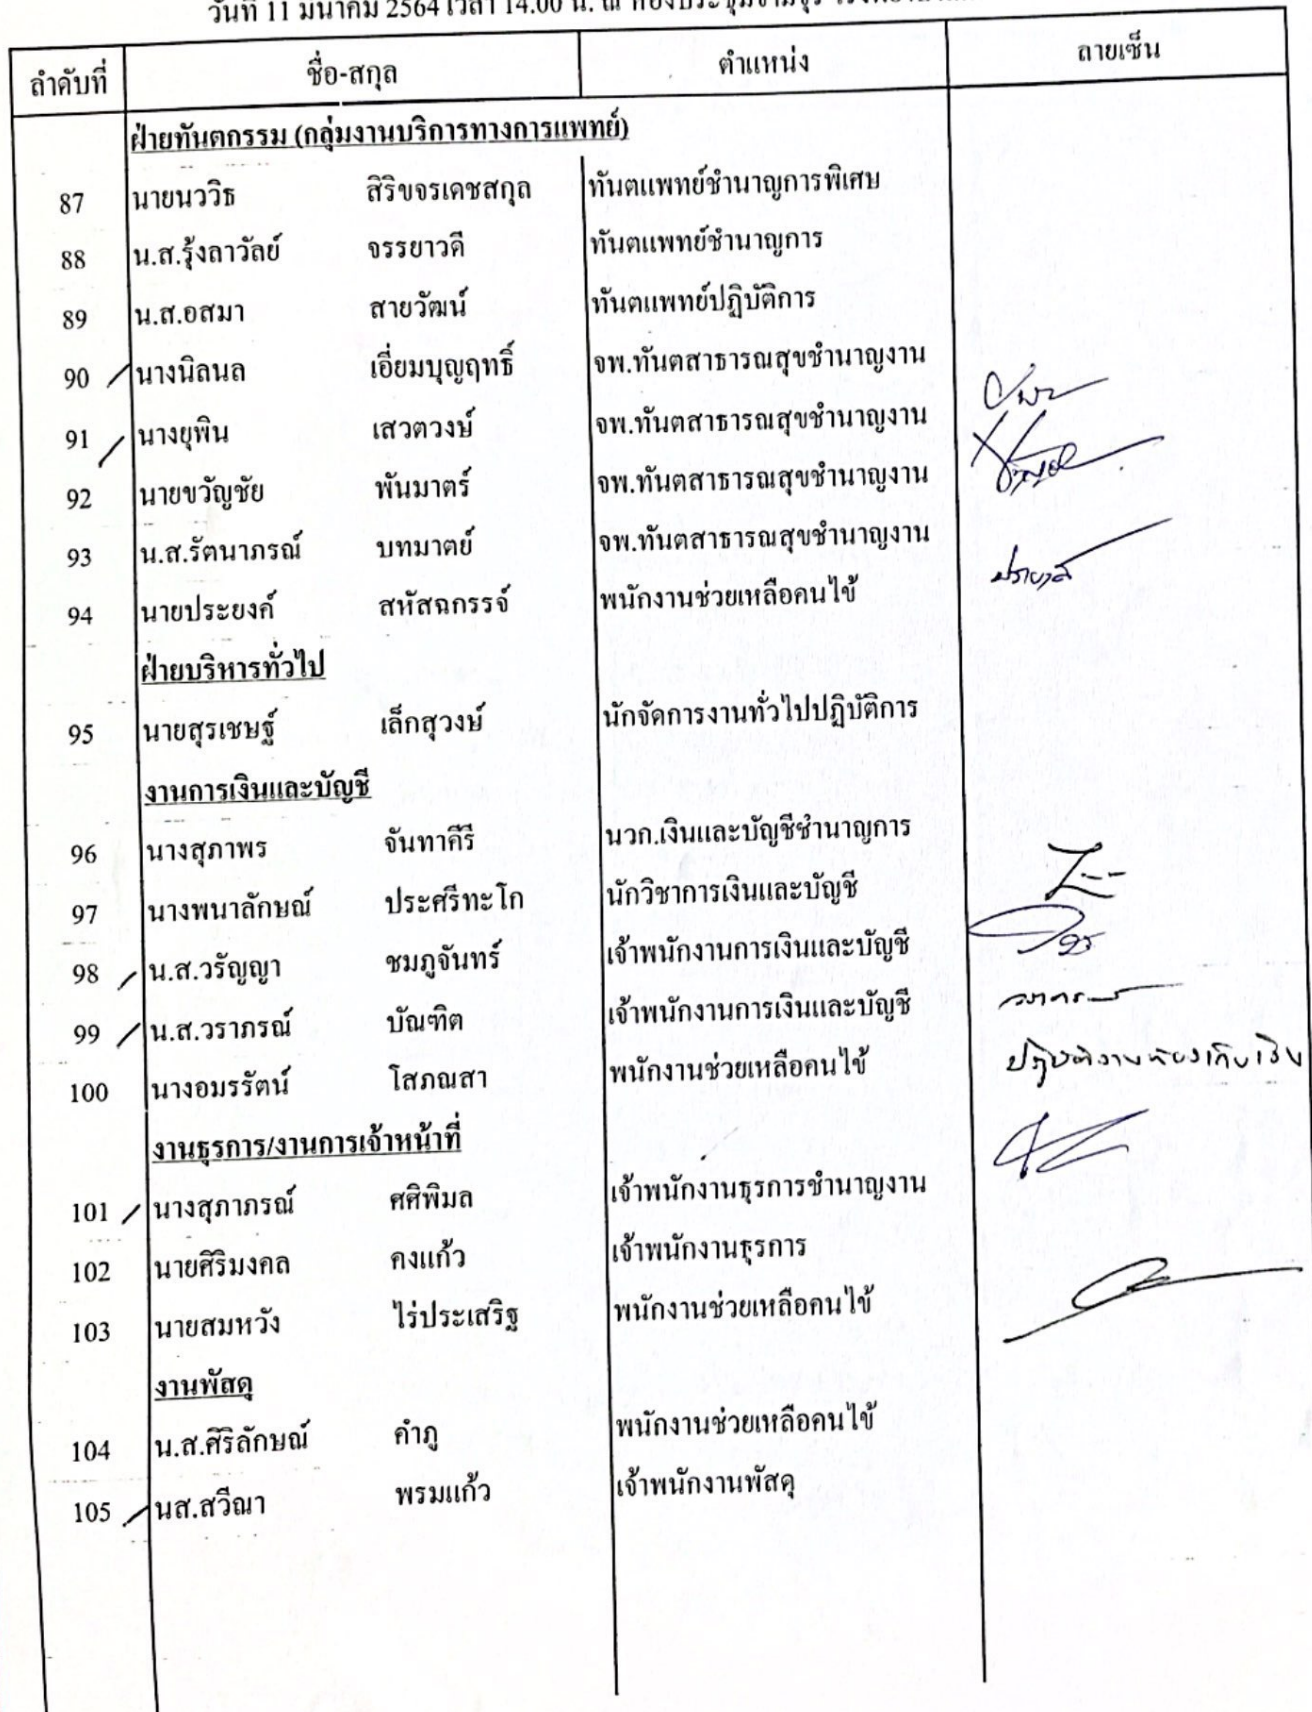 วันที่ 11 มีนาคม 2564 เวลา 14.00 น. ณ ห้องประชุม
ลำดับที่ ชื่อ-สกุล ตำแหน่ง ลายเซ็น
ฝ่ายทันตกรรม (กลุ่มงานบริการทางการแพทย์)
87 นายนววิธ สิริขจรเดชสกุล ทันตแพทย์ชำนาญการพิเศษ
88 น.ส.รุ้งลาวัลย์ จรรยาวดี ทันตแพทย์ชำนาญการ
89 น.ส.อสมา สายวัฒน์ ทันตแพทย์ปฏิบัติการ
90 นางนิลนล เอี่ยมบุญฤทธิ์ จพ.ทันตสาธารณสุขชำนาญงาน
91 นางยุพิน เสวตวงษ์ จพ.ทันตสาธารณสุขชำนาญงาน
92 นายขวัญชัย พันมาตร์ จพ.ทันตสาธารณสุขชำนาญงาน
93 น.ส.รัตนาภรณ์ บทมาตย์ จพ.ทันตสาธารณสุขชำนาญงาน
94 นายประยงค์ สหัสฉกรรจ์ พนักงานช่วยเหลือคนไข้
ฝ่ายบริหารทั่วไป
95 นายสุรเชษฐ์ เล็กสุวงษ์ นักจัดการงานทั่วไปปฏิบัติการ
งานการเงินและบัญชี
96 นางสุภาพร จันทาคีรี นวก.เงินและบัญชีชำนาญการ
97 นางพนาลักษณ์ ประศรีทะโก นักวิชาการเงินและบัญชี
98 น.ส.วรัญญา ชมภูจันทร์ เจ้าพนักงานการเงินและบัญชี
99 น.ส.วราภรณ์ บัณฑิต เจ้าพนักงานการเงินและบัญชี
100 นางอมรรัตน์ โสภณสา พนักงานช่วยเหลือคนไข้ ปฏิบัติงานห้องเก็บเงิน
งานธุรการ/งานการเจ้าหน้าที่
101 นางสุภาภรณ์ ศศิพิมล เจ้าพนักงานธุรการชำนาญงาน
102 นายศิริมงคล คงแก้ว เจ้าพนักงานธุรการ
103 นายสมหวัง ไร่ประเสริฐ พนักงานช่วยเหลือคนไข้
งานพัสดุ
104 น.ส.ศิริลักษณ์ คำภู พนักงานช่วยเหลือคนไข้
105 นส.สวีณา พรมแก้ว เจ้าพนักงานพัสดุ